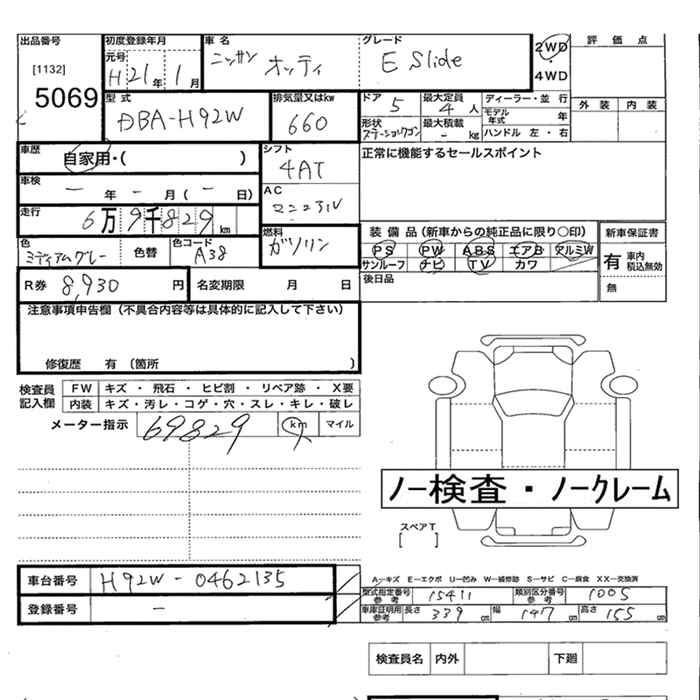 出品番号 初度登録年月 車名 グレード 2WD・4WD 評価点
[1132] 元号 H21年1月 ニッサン オッティ E Slide
5069
外装 内装
型式 DBA-H92W 排気量又はkw 660 ドア 5 最大定員 4人 ディーラー・並行
モデル年式 年
形状 ステーションワゴン 最大積載 - kg ハンドル 左・右
車歴 自家用・( ) シフト 4AT 正常に機能するセールスポイント
車検 ー年ー月(ー日) AC マニュアル
走行 6万9千829km
燃料 ガソリン 装備品(新車からの純正品に限り〇印) 新車保証書
色 ミディアムグレー 色替 色コード A38 PS PW ABS エアB アルミW 有 車内 積込無効
サンルーフ ナビ TV カワ
R券 8,930円 名変期限 月 日 後日品 無
注意事項申告欄(不具合内容等は具体的に記入して下さい)
修復歴 有(箇所 )
検査員記入欄 FW キズ・飛石・ヒビ割・リペア跡・X要
内装 キズ・汚レ・コゲ・穴・スレ・キレ・破レ
メーター指示 69829 km マイル
ノー検査・ノークレーム
スペアT
[ ]
車台番号 H92W-0462135
A-キズ E-エクボ U-凹み W-補修跡 S-サビ C-腐食 XX-交換済
型式指定番号参考 15411 類別区分番号参考 1005
登録番号 ー 車庫証明用参考 長さ 339cm 幅 147cm 高さ 155cm
検査員名 内外 下廻